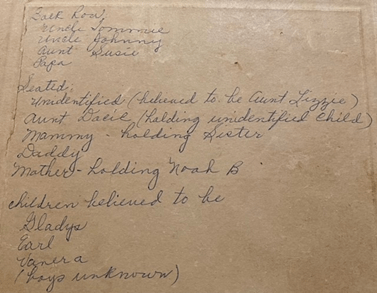 Back Row
Uncle Tommie
Uncle Johnny
Aunt Susie
Papa
Seated:
Unidentified (believed to be Aunt Lizzie)
Aunt (holding unidentified child)
Mammy - holding Sister
Daddy
Mother - holding Noah B
Children believed to be
Gladys
Earl
(boys unknown)